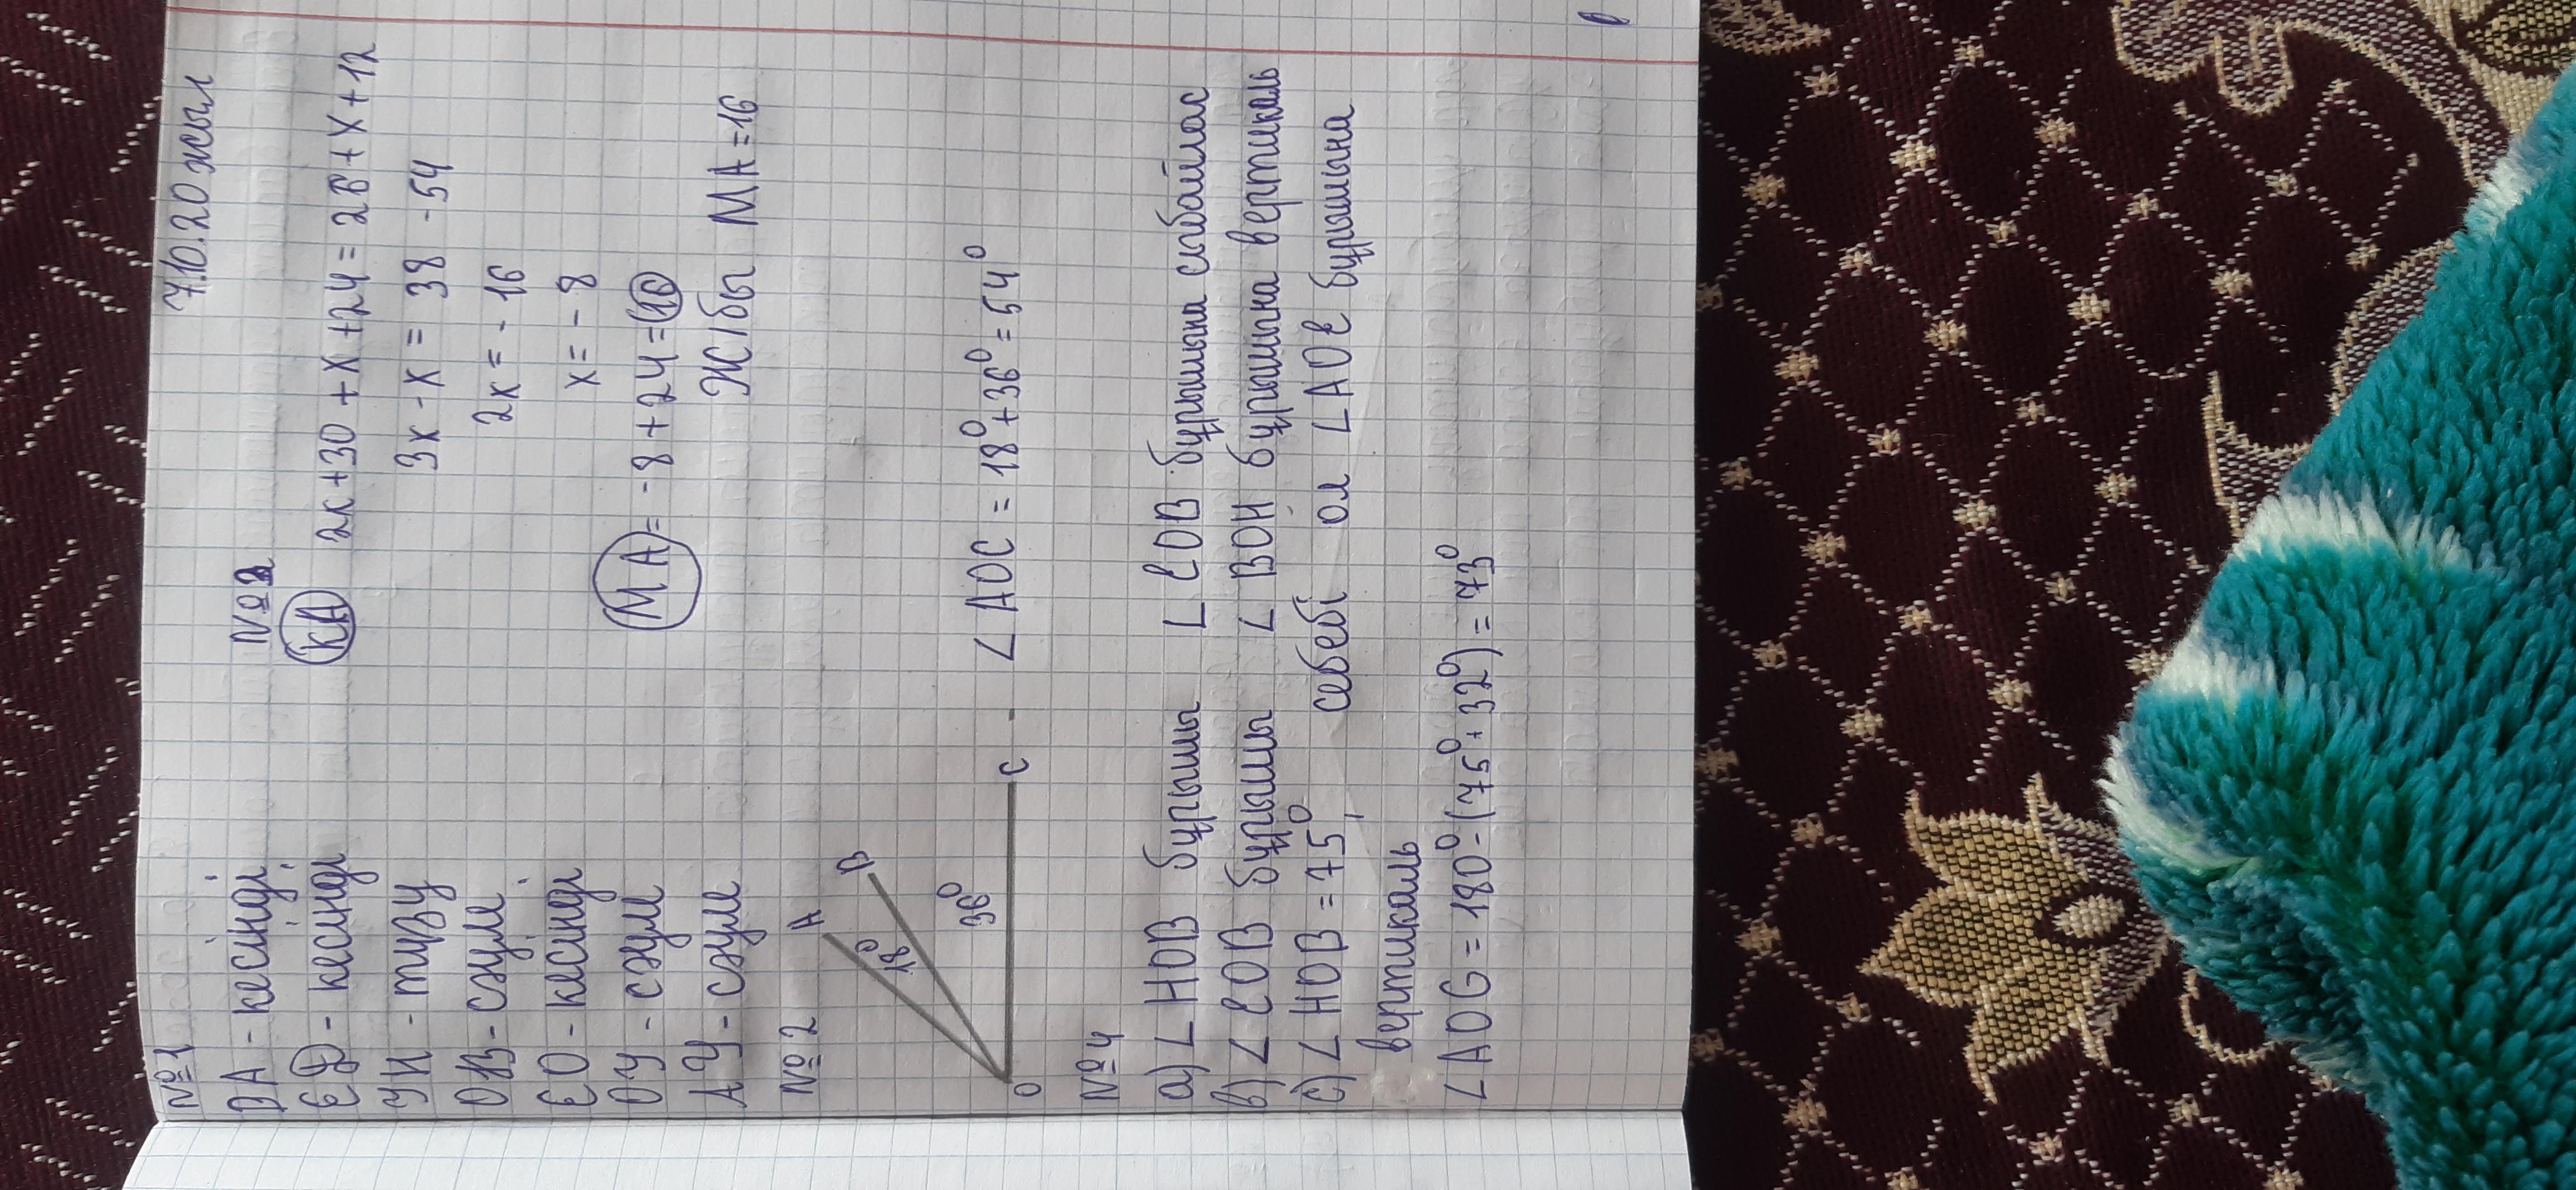 7.10.20 жыл
№1
DA - кесінді
ЕУ - кесінді
УН - түзу
ОВ - сәуле
ЕО - кесінді
ОУ - сәуле
АУ - сәуле
№2
KA 2x+30+x+24=26+x+12
3x-x=38-54
2x=-16
x=-8
MA=-8+24=16
Ж/бы MA=16
№2
A
B
18°
36°
O
C
∠AOC=18°+36°=54°
№4
a) ∠HOB бұрышы ∠EOB бұрышына сыбайлас
b) ∠EOB бұрышы ∠BOH бұрышына вертикаль
c) ∠HOB=75°, себебі ол ∠AOE бұрышына
вертикаль
∠AOG=180°-(75°+32°)=73°